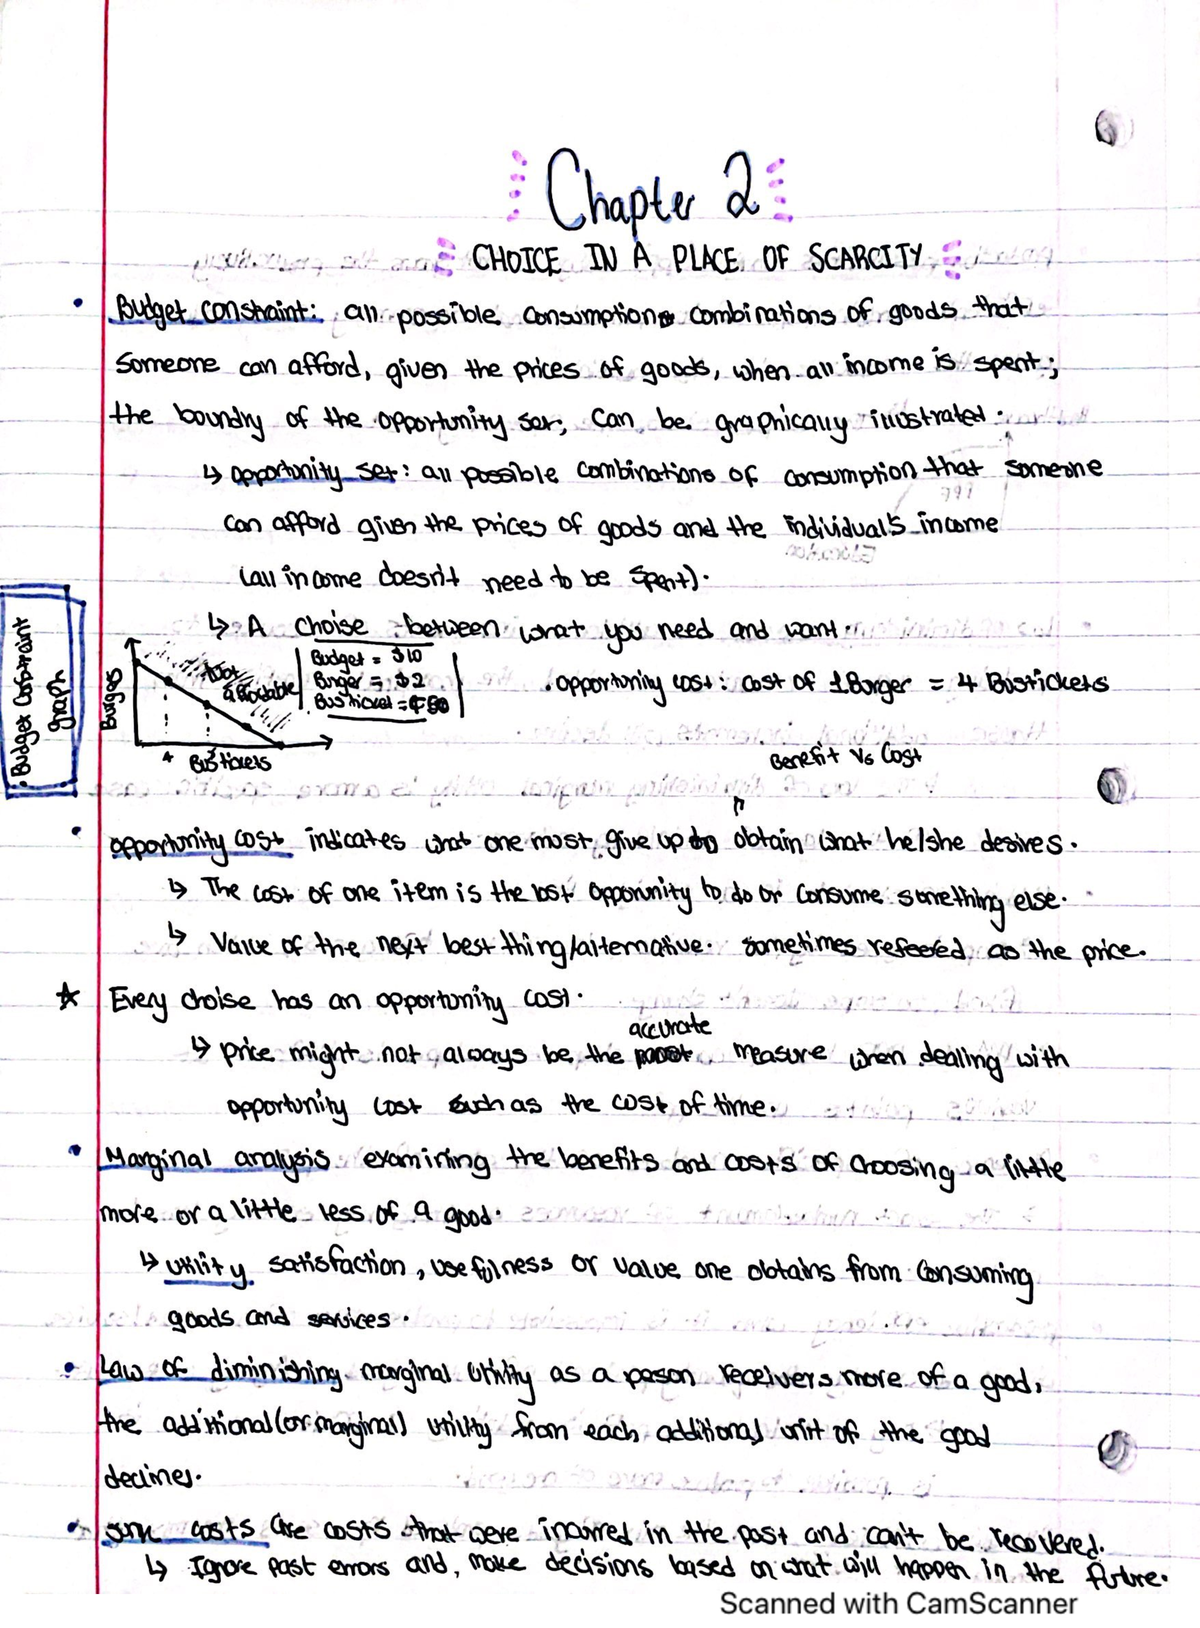 Chapter 2
CHOICE IN A PLACE OF SCARCITY
• Budget constraint: all possible consumption combinations of goods that
someone can afford, given the prices of goods, when all income is spent;
the boundry of the opportunity set; can be graphically illustrated.
↳ opportunity set: all possible combinations of consumption that someone
can afford given the prices of goods and the individual's income
(all income doesn't need to be spent).
↳ A choise between what you need and want.
Budget Constraint
graph
Burgers
Not
affordable
Budget = $10
Burger = $2
Bus ticket = ¢50
• opportunity cost: cost of 1 Burger = 4 Bustickets
4 Bustickets
Benefit Vs Cost
• opportunity cost indicates what one must give up to obtain what he/she desires.
↳ The cost of one item is the lost opporunity to do or consume something else.
↳ Value of the next best thing/alternative. sometimes refeered as the price.
☆ Every choise has an opportunity cost.
accurate
↳ price might not always be the measure when dealing with
opportunity cost such as the cost of time.
• Marginal analysis examining the benefits and costs of choosing a little
more or a little less of a good.
↳ utility satisfaction, usefulness or value one obtains from consuming
goods and services.
• Law of diminishing marginal utility as a peson receivers more of a good,
the additional (or marginal) utility from each additional unit of the good
declines.
• sunk costs are costs that were incurred in the past and can't be recovered.
↳ Ignore past errors and, make decisions based on what will happen in the future.
Scanned with CamScanner